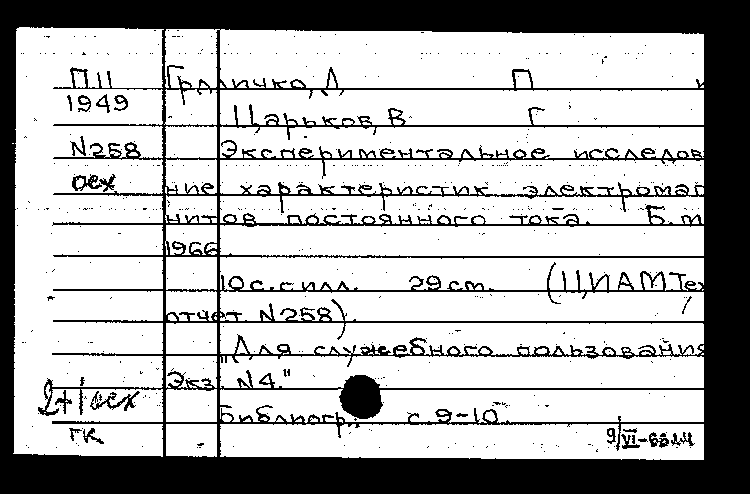 П11 Гр П и
1949 Царьков, В Г
N258 Экспериментальное исследов
оех ние характеристик электромаг
нитов постоянного тока. Б.м
1966.
10 с. с илл. 29 см. (ЦИАМ Тех
отчет N258).
"Для служебного пользования
Экз. N4."
2+1 оех Библиогр.: с. 9-10.
гк. 9/VI-66